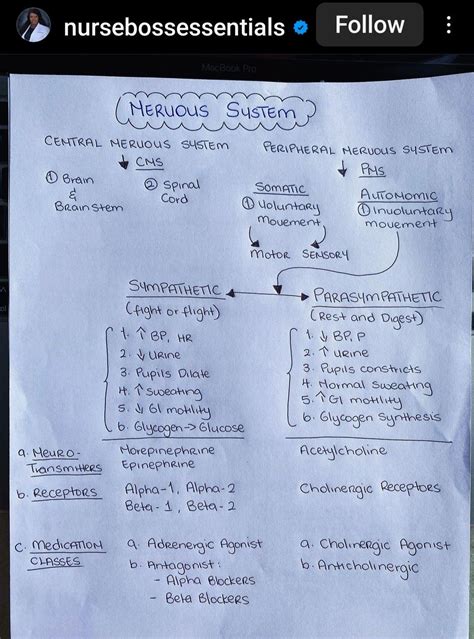 nursebossessentials
Follow
MacBook Pro
NERVOUS SYSTEM
CENTRAL NERVOUS SYSTEM
↓ CNS
① Brain
&
Brain Stem
② Spinal
Cord
PERIPHERAL NERVOUS SYSTEM
↓ PNS
SOMATIC
① Voluntary
movement
AUTONOMIC
① Involuntary
movement
MOTOR SENSORY
SYMPATHETIC
(fight or flight)
1. ↑ BP, HR
2. ↓ Urine
3. Pupils Dilate
4. ↑ Sweating
5. ↓ GI motility
6. Glycogen → Glucose
PARASYMPATHETIC
(Rest and Digest)
1. ↓ BP, P
2. ↑ Urine
3. Pupils constricts
4. Normal Sweating
5. ↑ GI motility
6. Glycogen Synthesis
a. NEURO-
TRANSMITTERS
Norepinephrine
Epinephrine
Acetylcholine
b. RECEPTORS
Alpha-1, Alpha-2
Beta-1, Beta-2
Cholinergic Receptors
C. MEDICATION
CLASSES
a. Adrenergic Agonist
b. Antagonist:
- Alpha Blockers
- Beta Blockers
a. Cholinergic Agonist
b. Anticholinergic